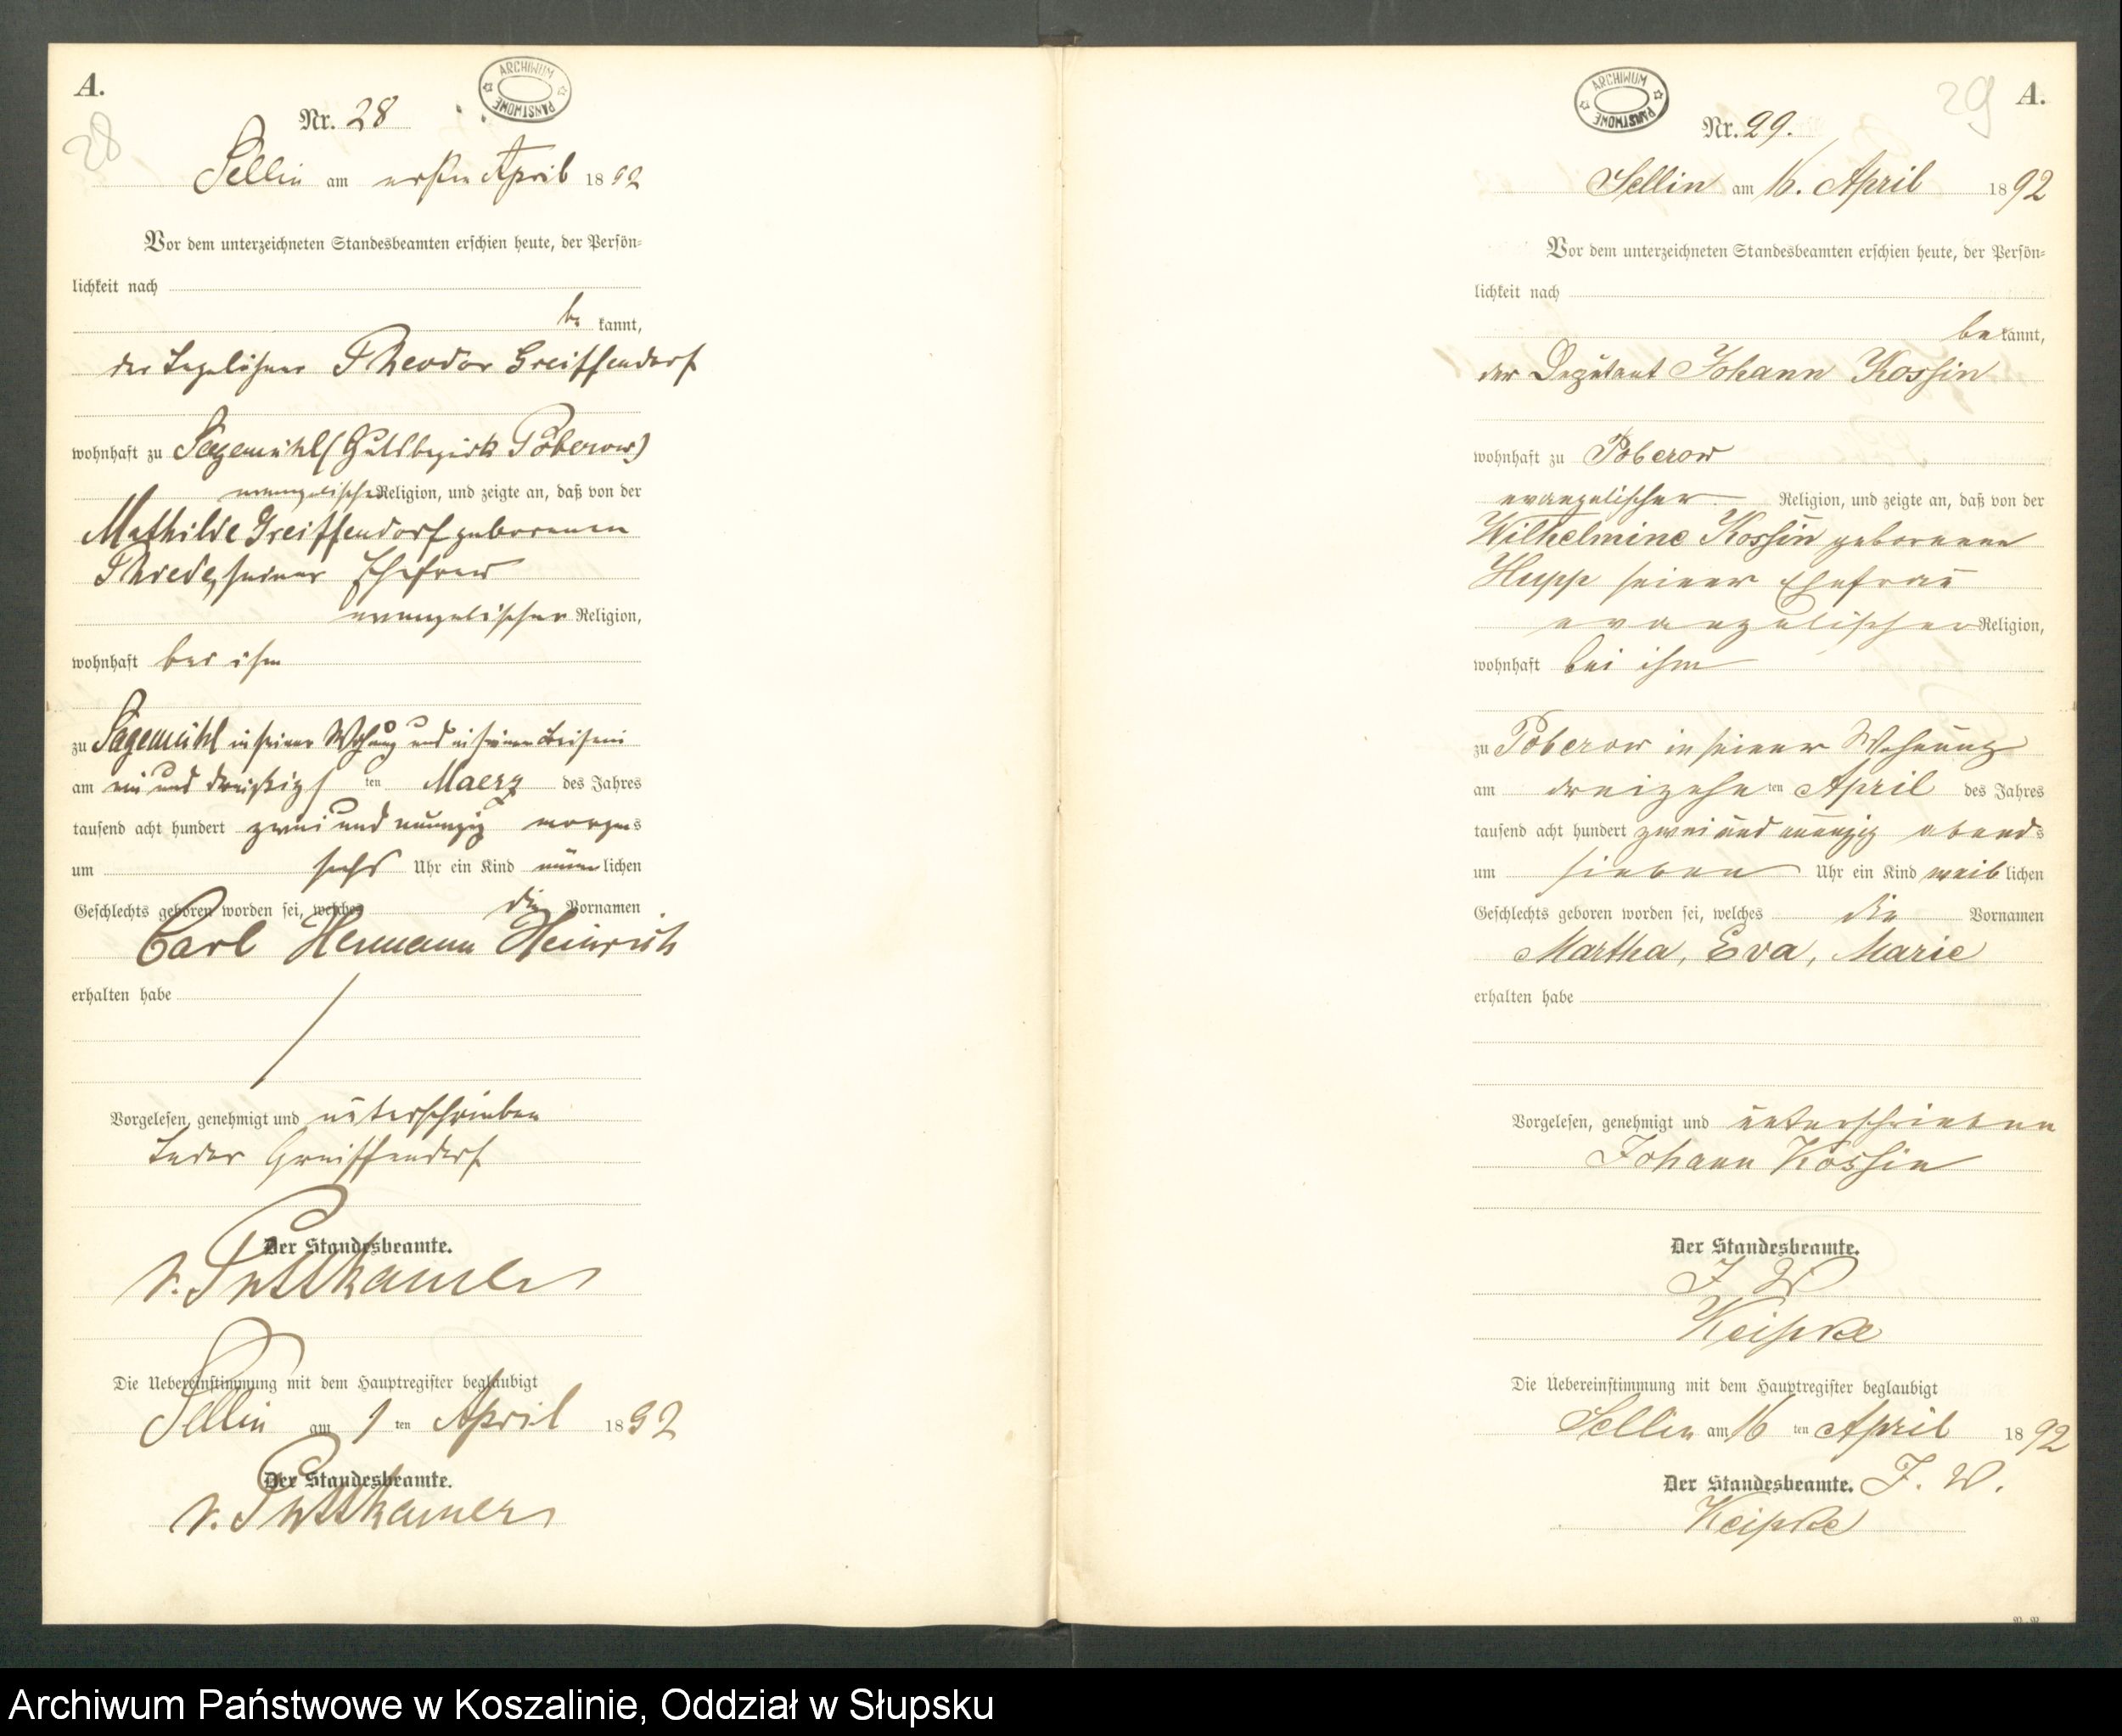 A.
28
ARCHIWUM PAŃSTWOWE
Nr. 28
Sellin am ersten April 1892
Vor dem unterzeichneten Standesbeamten erschien heute, der Persön-
lichkeit nach
be kannt,
der Tagelöhner Theodor Greiffendorf
wohnhaft zu Sagemühl (Gutsbezirk Poberow)
evangelischer Religion, und zeigte an, daß von der
Mathilde Greiffendorf geborenen
seiner Ehefrau
evangelischer Religion,
wohnhaft bei ihm
zu Sagemühl in seiner Wohnung und in seinem Beisein
am ein und dreißigs ten Maerz des Jahres
tausend acht hundert zwei und neunzig morgens
um sechs Uhr ein Kind männlichen
Geschlechts geboren worden sei, welches die Vornamen
Carl Hermann Heinrich
erhalten habe
Vorgelesen, genehmigt und unterschrieben
Greiffendorf
Der Standesbeamte.
v. Puttkamer
Die Uebereinstimmung mit dem Hauptregister beglaubigt
Sellin am 1 ten April 1892
Der Standesbeamte.
v. Puttkamer
ARCHIWUM PAŃSTWOWE
29
A.
Nr. 29.
Sellin am 16. April 1892
Vor dem unterzeichneten Standesbeamten erschien heute, der Persön-
lichkeit nach
bekannt,
der Deputant Johann Kossin
wohnhaft zu Poberow
evangelischer Religion, und zeigte an, daß von der
Wilhelmine Kossin geborenen
Hupp seiner Ehefrau
evangelischer Religion,
wohnhaft bei ihm
zu Poberow in seiner Wohnung
am dreizehn ten April des Jahres
tausend acht hundert zwei und neunzig abends
um sieben Uhr ein Kind weiblichen
Geschlechts geboren worden sei, welches die Vornamen
Martha, Eva, Marie
erhalten habe
Vorgelesen, genehmigt und unterschrieben
Johann Kossin
Der Standesbeamte.
J W
Keipke
Die Uebereinstimmung mit dem Hauptregister beglaubigt
Sellin am 16 ten April 1892
Der Standesbeamte. J. W.
Keipke
Archiwum Państwowe w Koszalinie, Oddział w Słupsku